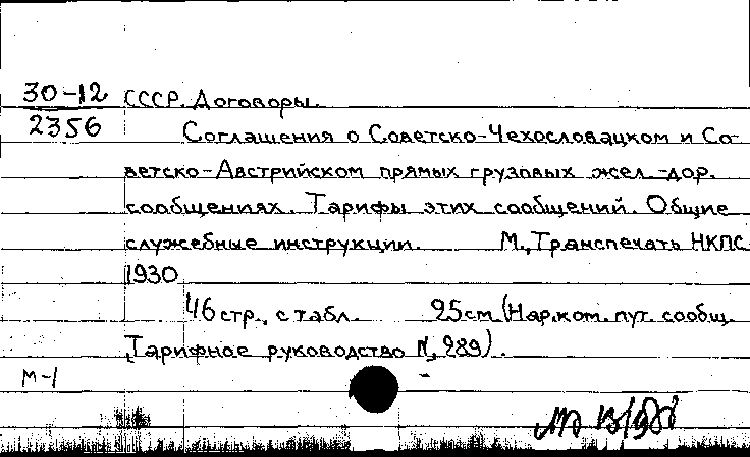 30-12 СССР. Договоры.
2356 Соглашения о Советско-Чехословацком и Со-
ветско-Австрийском прямых грузовых жел.-дор.
сообщениях. Тарифы этих сообщений. Общие
служебные инструкции. М., Транспечать НКПС
1930
46 стр., с табл. 25см (Нар.ком. пут. сообщ.
Тарифное руководство N 289).
М-1